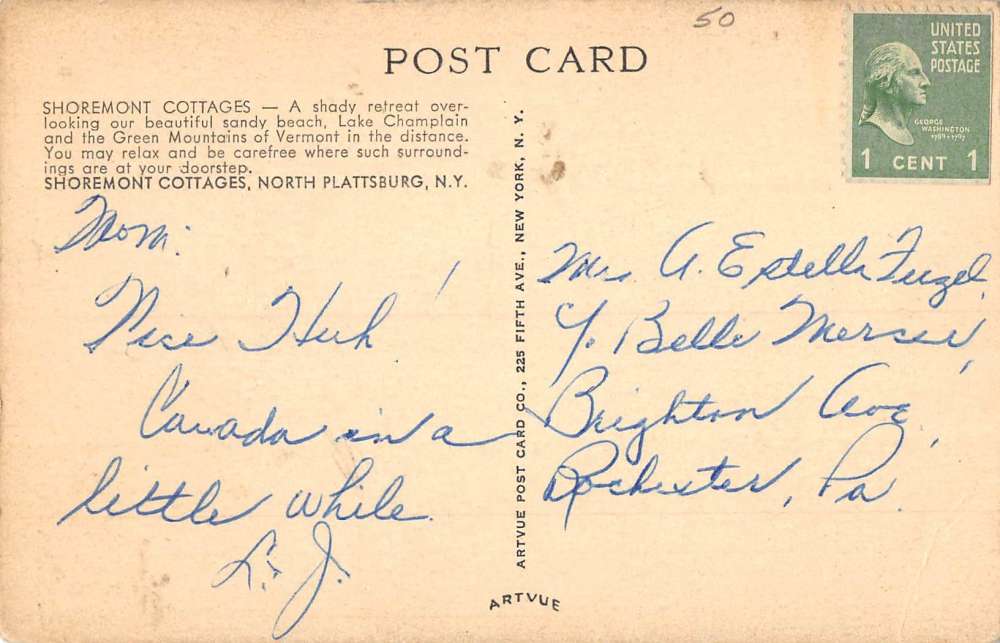 50
POST CARD
UNITED
STATES
POSTAGE
GEORGE
WASHINGTON
1789-1797
1 CENT 1
SHOREMONT COTTAGES — A shady retreat over-
looking our beautiful sandy beach, Lake Champlain
and the Green Mountains of Vermont in the distance.
You may relax and be carefree where such surround-
ings are at your doorstep.
SHOREMONT COTTAGES, NORTH PLATTSBURG, N.Y.
Mom:
Nice Huh!
Canada in a
little while.
L. J.
ARTVUE POST CARD CO., 225 FIFTH AVE., NEW YORK, N. Y.
Mrs A. Estella
% Belle Mercer,
Brighton Ave,
Rochester, Pa.
ARTVUE